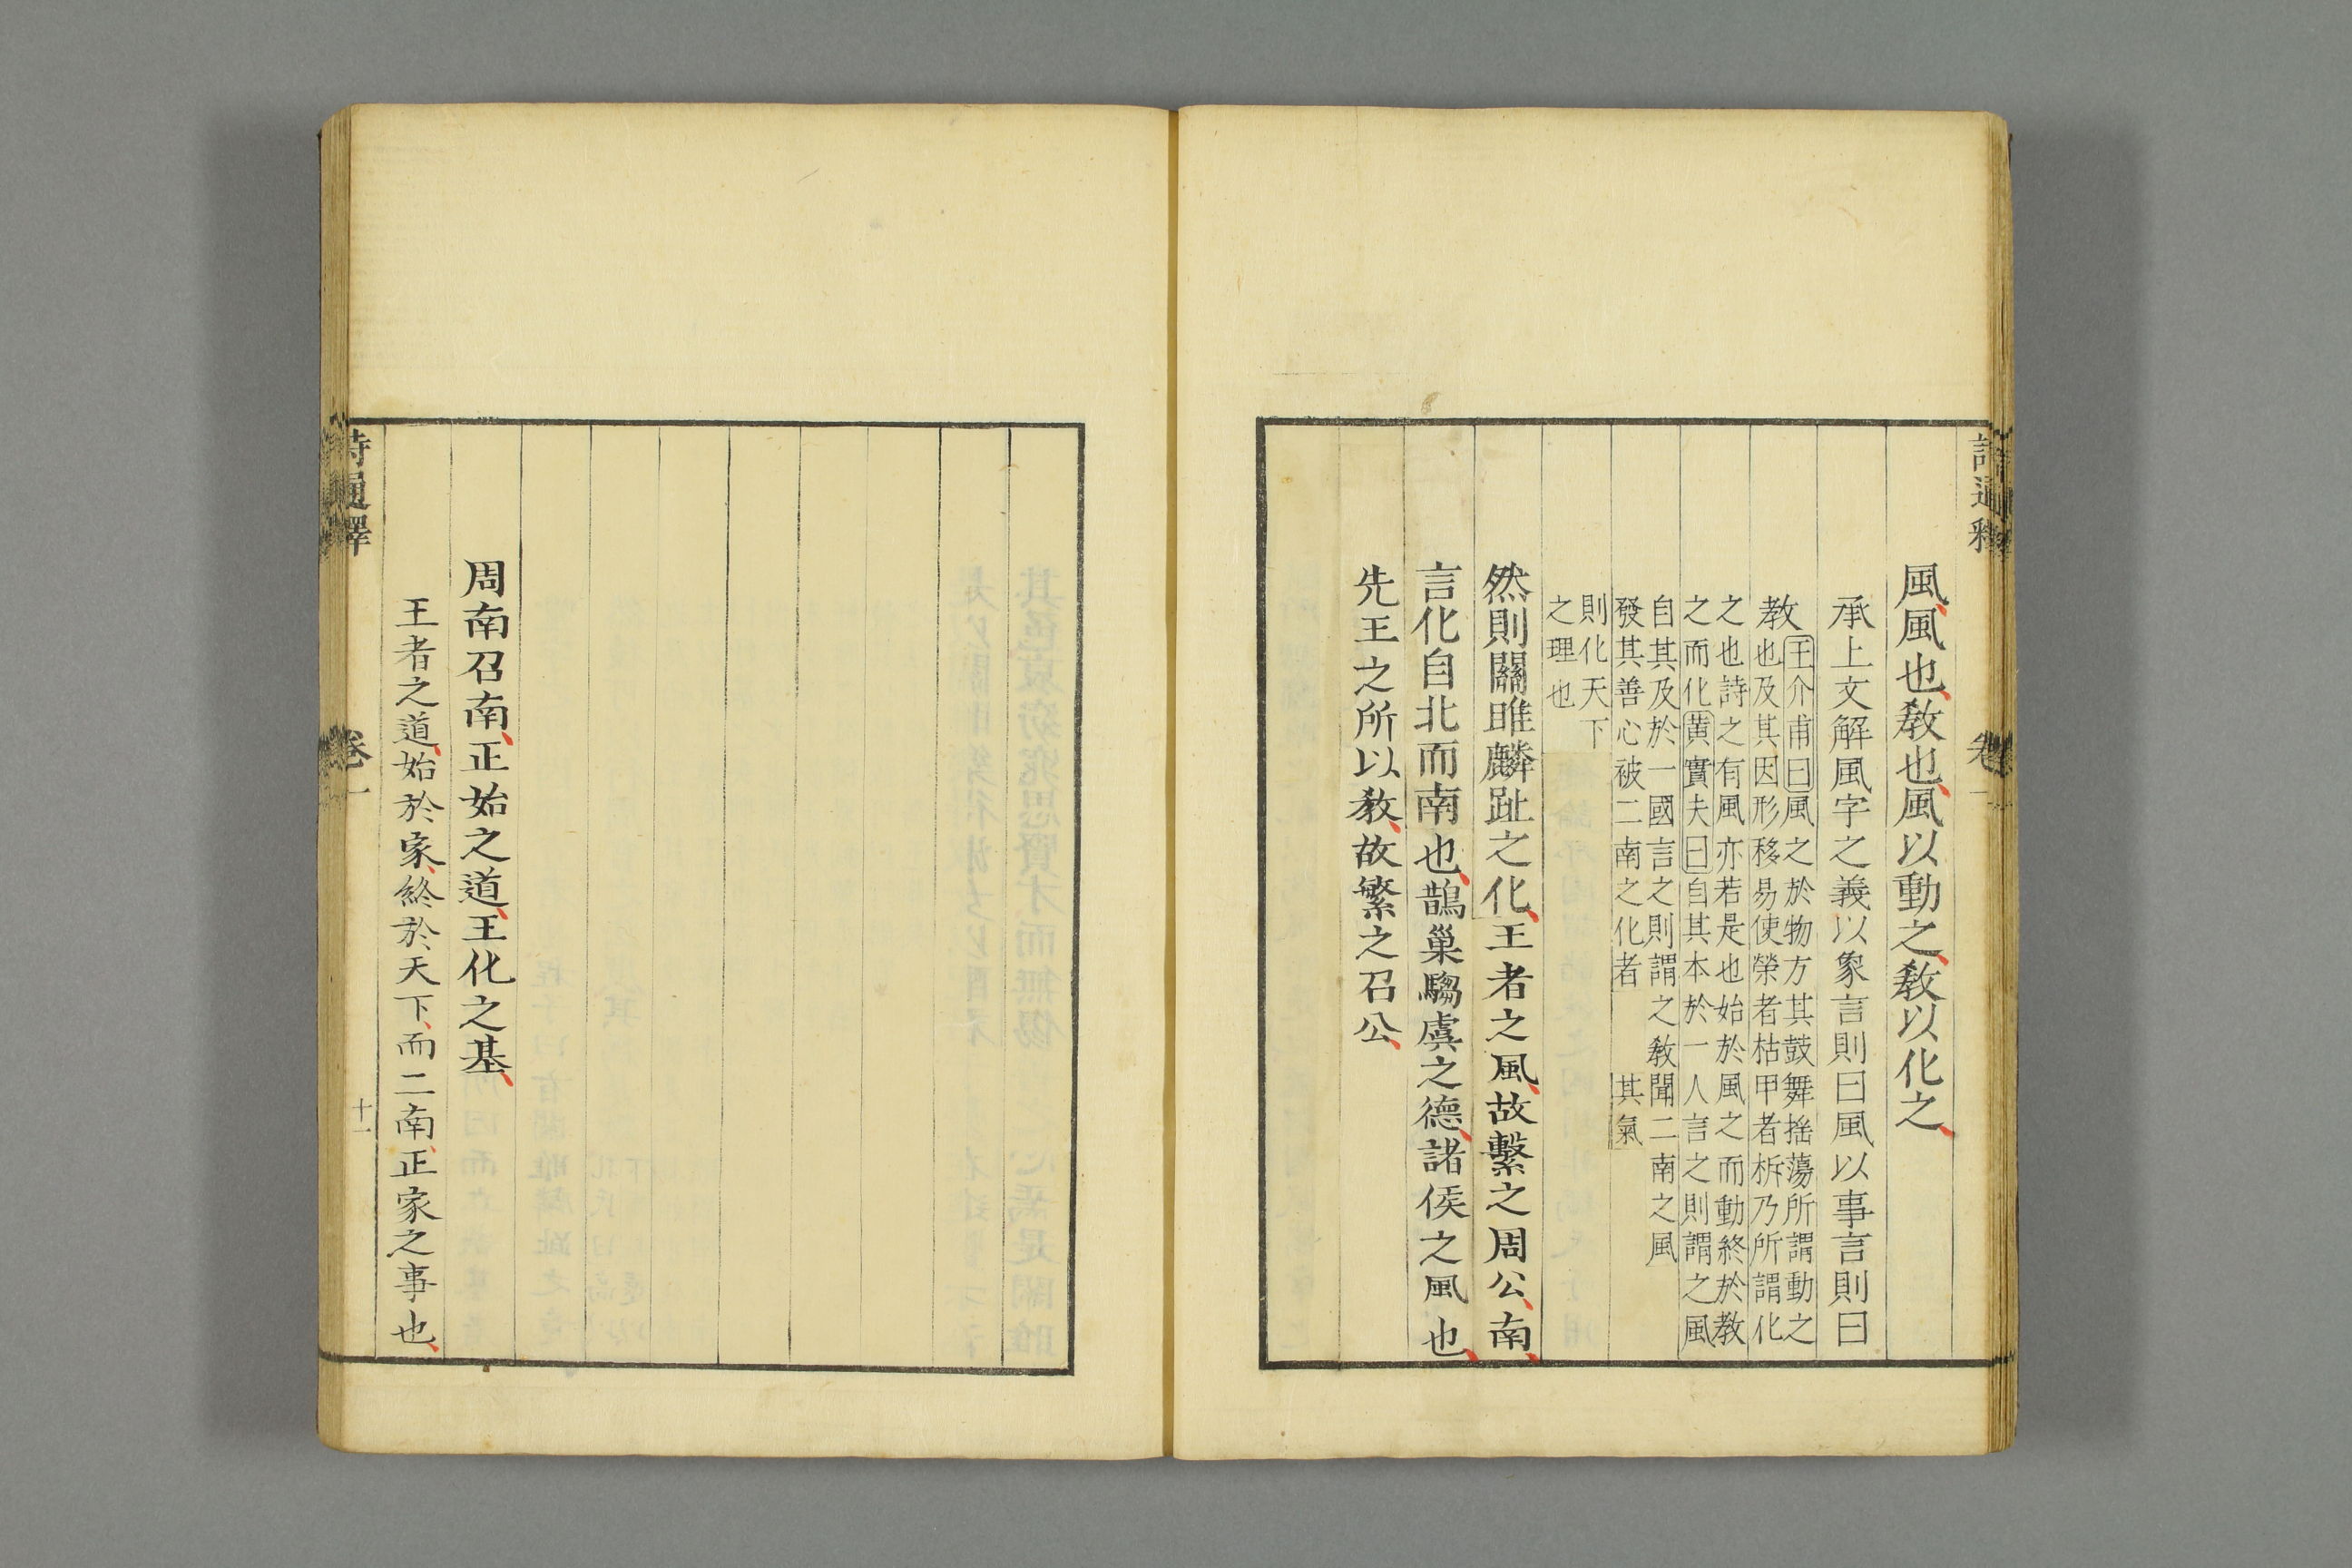 詩通釋 卷一
風風也教也風以動之教以化之
承上文解風字之義以象言則曰風以事言則曰
教
王介甫曰風之於物方其鼓舞揺蕩所謂動之
也及其因形移易使榮者枯甲者柝乃所謂化
之也詩之有風亦若是也始於風之而動終於教
之而化黃實夫曰自其本於一人言之則謂之風
自其及於一國言之則謂之教聞二南之風
發其善心被二南之化者 其氣
則化天下
之理也
然則關雎麟趾之化王者之風故繫之周公南
言化自北而南也鵲巢騶虞之德諸侯之風也
先王之所以教故繁之召公
周南召南正始之道王化之基
王者之道始於家終於天下而二南正家之事也
詩通釋 卷一 十一